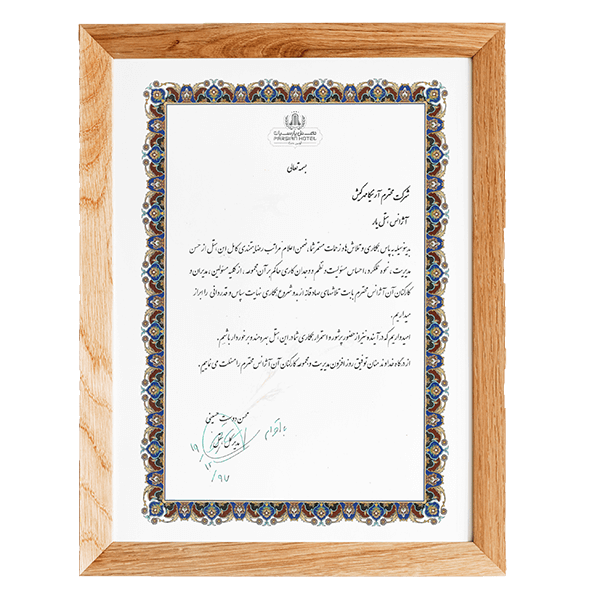 هتل پارسیان
PARSIAN HOTEL
بسمه تعالی
شرکت محترم آریکا سفر کیش
آژانس هتل یار
بدینوسیله به پاس همکاری و تلاش ها و زحمات مستمر شما، ضمن اعلام مراتب رضایتمندی کامل این هتل از حسن
مدیریت، نحوه عملکرد، احساس مسئولیت و نظم و وجدان کاری حاکم بر آن مجموعه، از کلیه مسئولین، مدیران و
کارکنان آن آژانس محترم بابت تلاشهای صادقانه از بدو شروع همکاری نهایت سپاس و قدردانی را ابراز
میداریم.
امیدواریم که در آینده نیز از حضور پرشور و استمرار همکاری شما در این هتل بهره مند و برخوردار باشیم.
از درگاه خداوند منان توفیق روز افزون مدیریت و مجموعه کارکنان آن آژانس محترم را مسئلت می نماییم.
محسن دوست حسینی
مدیر کل هتل
با احترام
۱۹/۱۲/۹۷